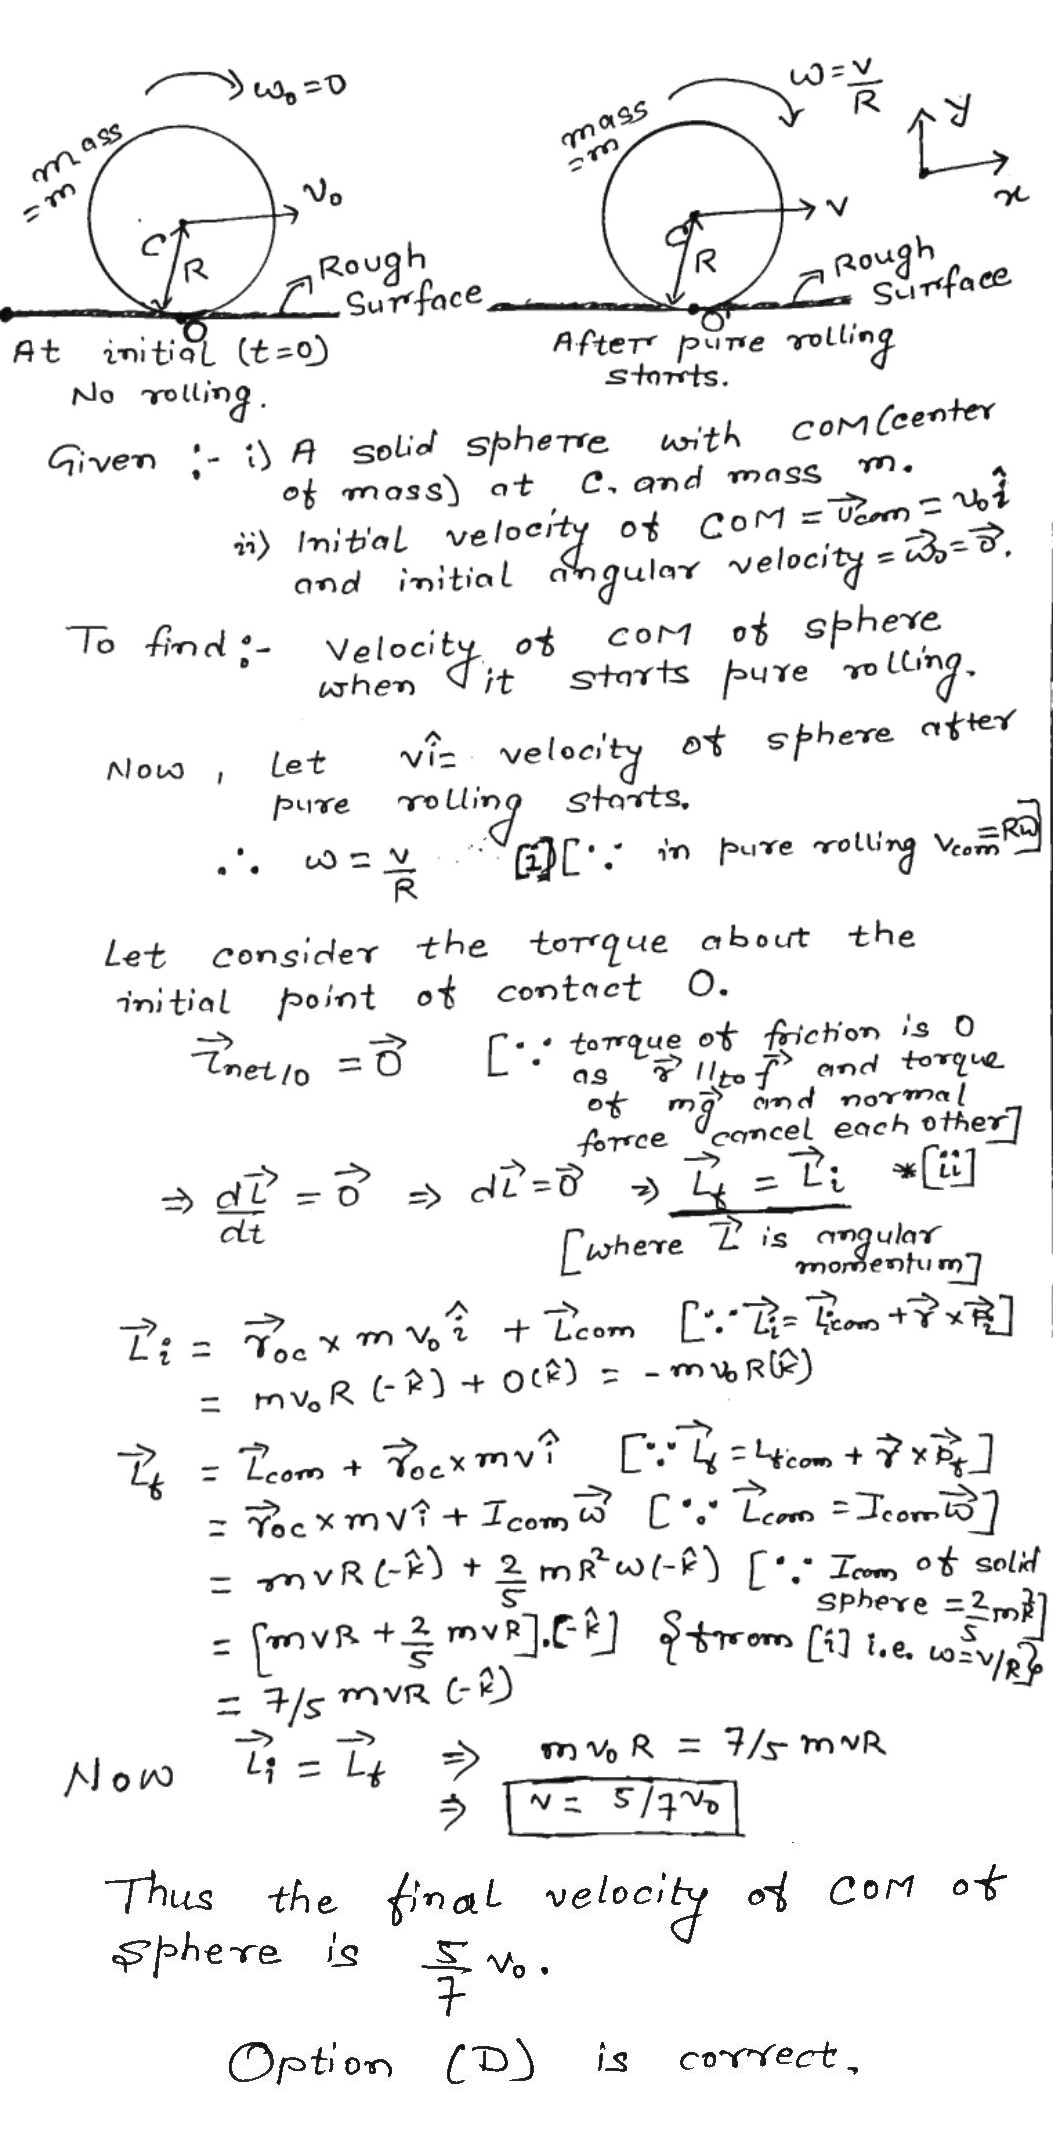 ω₀=0
mass
=m
v₀
C
R
Rough
Surface
O
At initial (t=0)
No rolling.
ω=v/R
mass
=m
y
x
v
C
R
Rough
Surface
O'
After pure rolling
starts.
Given :- i) A solid sphere with COM (center
of mass) at C. and mass m.
ii) Initial velocity of COM = v⃗com = v₀î
and initial angular velocity = ω⃗₀ = 0⃗.
To find :- Velocity of COM of sphere
when it starts pure rolling.
Now, Let vî = velocity of sphere after
pure rolling starts.
∴ ω = v/R ... [i] [∵ in pure rolling vcom = Rω]
Let consider the torque about the
initial point of contact O.
τ⃗net/O = 0⃗ [∵ torque of friction is 0
as r⃗ || to f⃗ and torque
of mg⃗ and normal
force cancel each other]
⇒ dL⃗/dt = 0⃗ ⇒ dL⃗ = 0⃗ ⇒ L⃗f = L⃗i *[ii]
[where L⃗ is angular
momentum]
L⃗i = r⃗oc × m v₀ î + L⃗com [∵ L⃗i = L⃗icom + r⃗ × P⃗i]
= mv₀R (-k̂) + 0(k̂) = -mv₀R(k̂)
L⃗f = L⃗com + r⃗oc × mvî [∵ L⃗f = Lfcom + r⃗ × P⃗f]
= r⃗oc × mvî + Icom ω⃗ [∵ L⃗com = Icom ω⃗]
= mvR (-k̂) + 2/5 mR²ω(-k̂) [∵ Icom of solid
sphere = 2/5 mR²]
= [mvR + 2/5 mvR].[-k̂] {from [i] i.e. ω=v/R}
= 7/5 mvR (-k̂)
Now L⃗i = L⃗f ⇒ mv₀R = 7/5 mvR
⇒ v = 5/7 v₀
Thus the final velocity of COM of
sphere is 5/7 v₀.
Option (D) is correct.